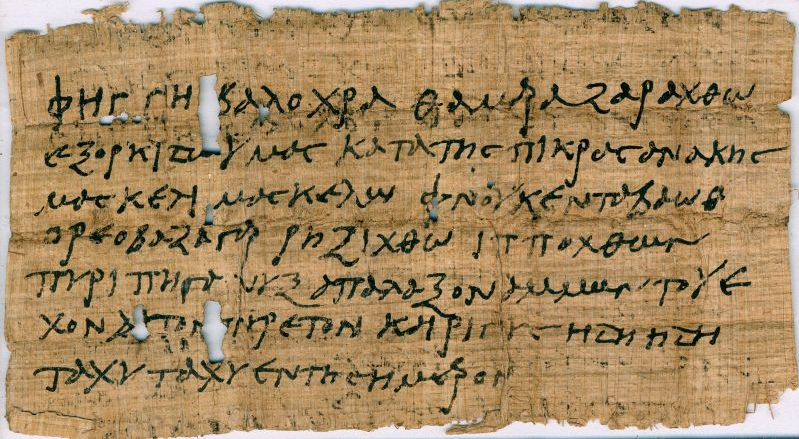 φηγγη βαλοχρα θαμρα ζαραχθω
εξορκιζω υμας κατα της πικρας ανακης
μασκελι μασκελλω φνουκενταβαωθ
ορεοβαζαγρ ρηξιχθω ιππoχθων
πυριπηγανυξ απαλαξον αμμων τον ε
χοντα τον πυρετον και ριγος ηδη ηδη
ταχυ ταχυ εν τη σημερον